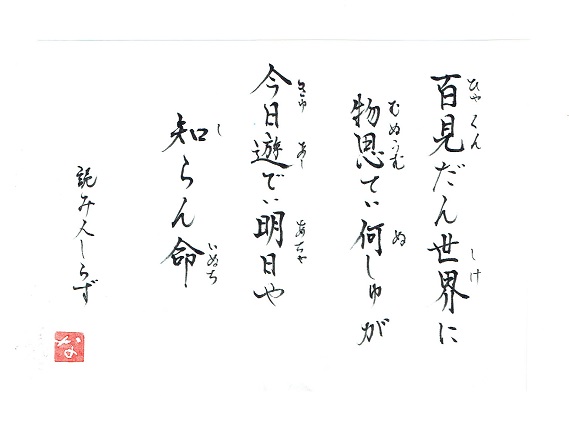 百見だん世界に
ひゃくん しけ
物思てぃ何しゅが
むぬうむ ぬ
今日遊でぃ明日や
きゅ あし あちゃ
知らん命
し いぬち
読み人しらず